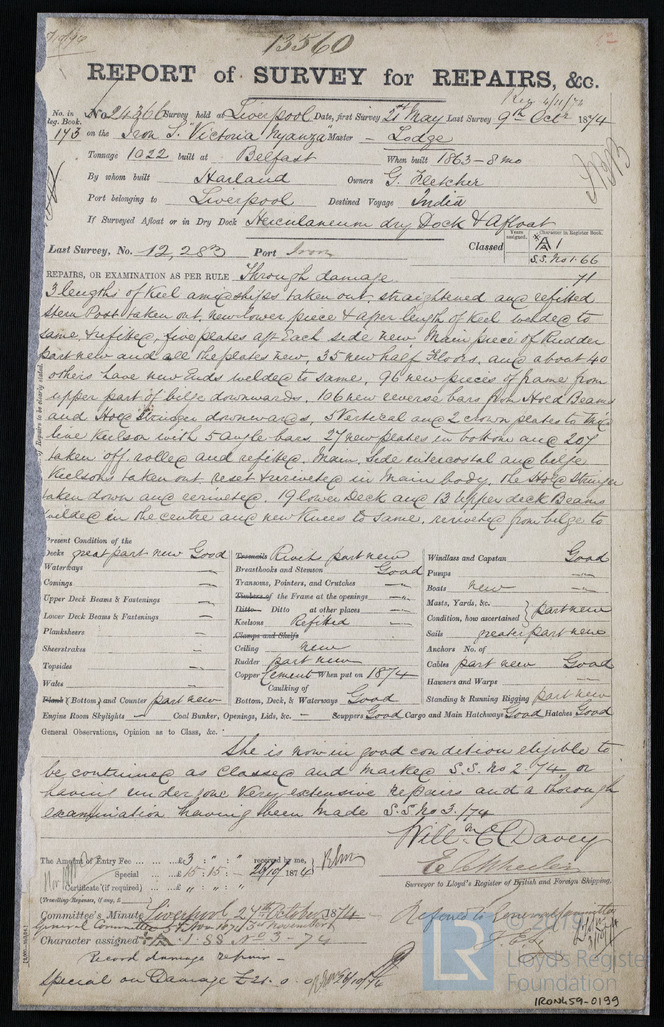 13560
REPORT of SURVEY for REPAIRS, &c.
No. in Reg. Book. No 24366 Survey held at Liverpool Date, first Survey 21st May Last Survey 9th Octr 1874
173 on the Iron S. "Victoria Nyanza" Master - Lodge
Tonnage 1022 built at Belfast When built 1863-8mo
By whom built Harland Owners G. Fletcher
Port belonging to Liverpool Destined Voyage India
If Surveyed Afloat or in Dry Dock Herculaneum dry Dock & Afloat
Years assigned. Character in Register Book.
Last Survey, No. 12,283 Port Iron Classed A 1
S.S. No 1-66
71
REPAIRS, OR EXAMINATION AS PER RULE Through damage
3 lengths of Keel amidships taken out, straightened and refitted
Stern Post taken out, new lower piece & after length of Keel welded to
same & refitted, five plates aft each side new, Main piece of Rudder
part new and all the plates new, 35 new half Floors, and about 40
others have new Ends welded to same, 96 new pieces of frame from
upper part of bilge downwards, 106 new reverse bars from Hold Beams
and Hold Stringer downwards, 5 Vertical and 2 crown plates to
line Keelson with 5 angle bars. 27 new plates in bottom and 207
taken off, rolled and refitted. Main, side intercostal and bilge
Keelsons taken out reset & riveted in main body, the Hold Stringer
taken down and reriveted. 19 lower Deck and 13 Upper deck Beams
welded in the centre and new Knees to same, reriveted from bilge to
Present Condition of the
Decks great part new Good
Waterways —
Comings —
Upper Deck Beams & Fastenings —
Lower Deck Beams & Fastenings —
Planksheers —
Sheerstrakes —
Topsides —
Wales —
Plank (Bottom) and Counter part new
Engine Room Skylights —
Treenails Rivets part new
Breasthooks and Stemson Good
Transoms, Pointers, and Crutches —
Timbers of the Frame at the openings —
Ditto Ditto at other places —
Keelsons Refitted
Clamps and Shelfs
Ceiling new
Rudder part new
Copper Cement When put on 1874
Caulking of
Bottom, Deck, & Waterways Good
Coal Bunker, Openings, Lids, &c. —
Windlass and Capstan Good
Pumps —
Boats new
Masts, Yards, &c.
Condition, how ascertained part new
Sails greater part new
Anchors No. of
Cables part new Good
Hawsers and Warps —
Standing & Running Rigging part new
Scuppers Good Cargo and Main Hatchways Good Hatches Good
General Observations, Opinion as to Class, &c.
She is now in good condition eligible to
be continued as classed and marked S.S. No 2-74 or
having undergone very extensive repairs and a thorough
examination having been made S.S No 3-/74
Willm C Davey
Surveyor to Lloyd's Register of British and Foreign Shipping.
The Amount of Entry Fee ... £3 : " : " received by me,
Special ... £15 : 15 : — 26/10/1874
Certificate (if required) ... £ " : " : "
(Travelling Expenses, if any, £
Committee's Minute Liverpool, 27th October 1874
General Committee 3rd November
Character assigned A 1 SS No 3-74
Record damage repairs -
Special on Damage £21. 0. 0
Referred to General Committee
© 2019
LR
Lloyd's Register
Foundation
IRON459-0139